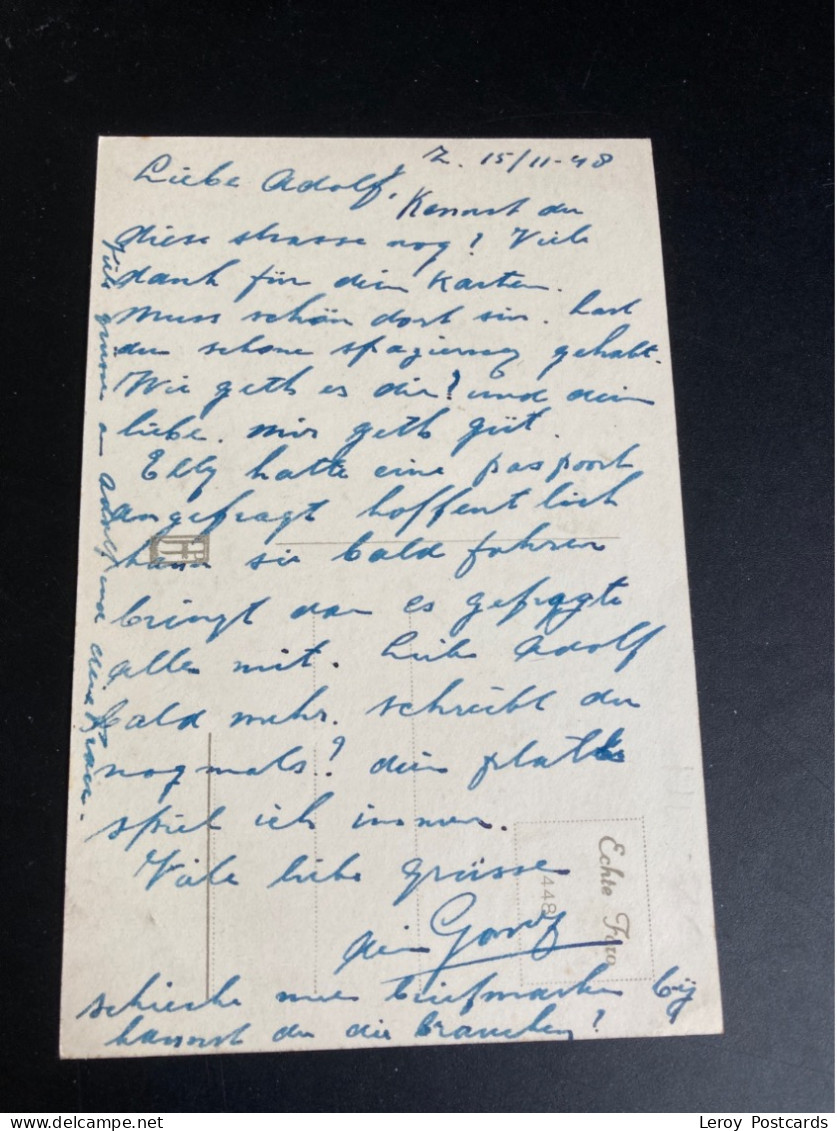 Z. 15/11-48
Liebe Adolf,
Kennst du
diese strasse nog? Viele
dank für dein Karten.
Muss schön dort sin. hast
du schone spazierweg gehabt.
Wie geth es dir? und dein
liebe. mir geth güt.
Elly hatte eine paspoort
angefragt hoffentlich
kann sie bald fahren
bringt dan es gefragte
alles mit. Liebe Adolf
bald mehr. schreibt du
nogmals? dein platte
spiel ich immer.
Viele liebe grüsse
dein
schicke mir briefmarken bÿ
kannst du die brauchen?
Viele grüsse an Adolf und deine
Echte Foto
448
Leroy Postcards